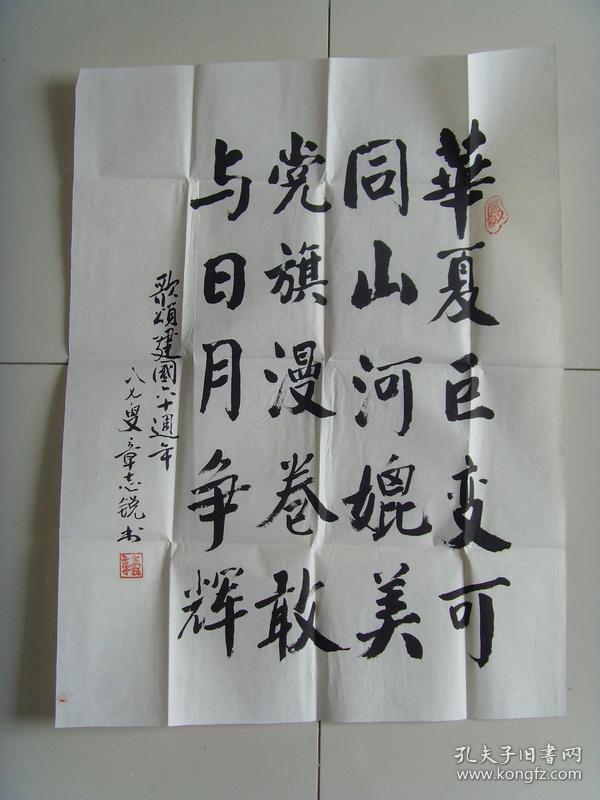 華夏巨变可
同山河媲美
党旗漫卷敢
与日月争辉
歌頌建國六十週年
八七叟章志锐书
孔夫子旧書网
www.kongfz.com